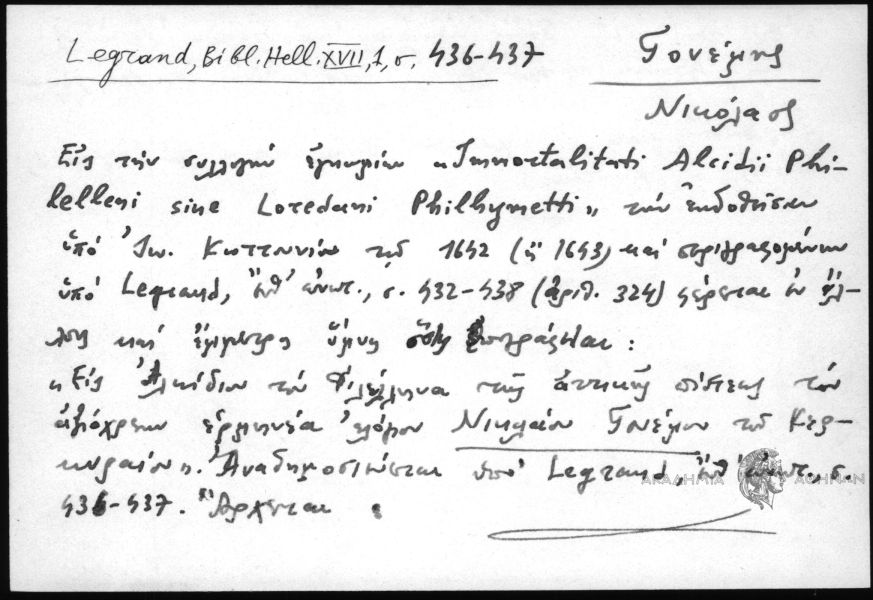 Legrand, Bibl. Hell. XVII, 1, σ. 436-437
Γονέμης
Νικόλαος
Εἰς τὴν συλλογὴν ἐγκωμίων «Immortalitati Alcidii Phi-
lelleni sive Loredani Philhymetti», τὴν ἐκδοθεῖσαν
ὑπὸ Ἰω. Κωττουνίου τῷ 1642 (ἢ 1643) καὶ περιγραφομένην
ὑπὸ Legrand, ἔνθ' ἀνωτ., σ. 432-438 (ἀριθ. 324) φέρεται ἐν ἄλ-
λοις καὶ ἔμμετρος ὕμνος
«Εἰς Ἀλκίδιον τὸν Φιλέλληνα τῆς ἀττικῆς πίστεως τὸν
ἀξιόχρεων ἑρμηνέα Νικολάου Γονέμου τοῦ Κερ-
κυραίου». Ἀναδημοσιεύεται ὑπὸ Legrand, ἔνθ' ἀνωτ., σ.
436-437. Ἄρχεται :
ΑΚΑΔΗΜΙΑ ΑΘΗΝΩΝ